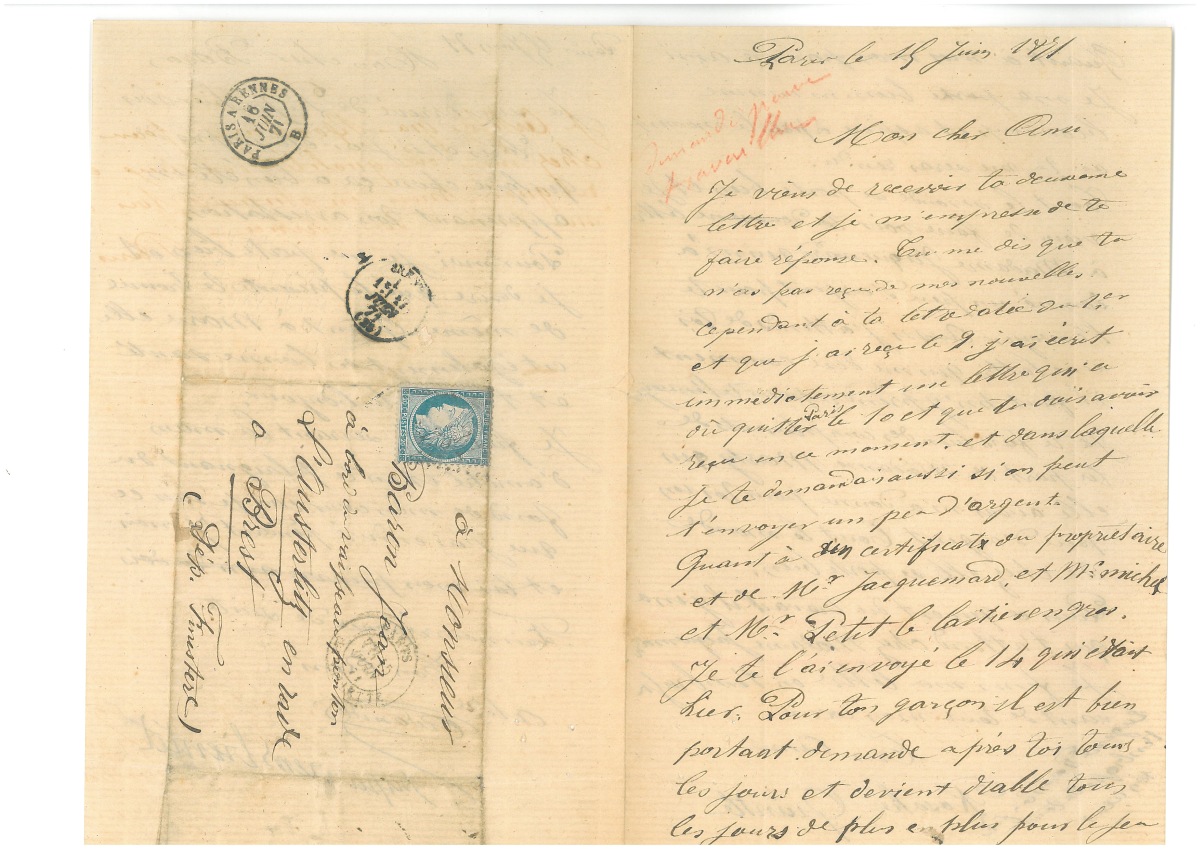 PARIS A RENNES
16
JUIN
71
B
JUIN
71
à Monsieur
Baron Jean
à bord du vaisseau ponton
L'Austerlitz en rade
a Brest
(Dép. Finistere)
Paris le 15 Juin 1871
demande
travail
Mon cher Ami
Je viens de recevoir ta deuxième
lettre et je m'empresse de te
faire réponse. Tu me dis que tu
n'as pas reçu de mes nouvelles
cependant à ta lettre datée du 1er
et que j'ai reçue le 9. j'ai écrit
immédiatement une lettre qui a
dû quitter Paris le 10 et que tu dois avoir
reçu en ce moment. et dans laquelle
Je te demandais aussi si on peut
t'envoyer un peu d'argent.
Quant à un certificat du propriétaire
et de Mr Jacquemard, et Mr michel
et Mr Petit le laitier en gros.
Je te l'ai envoyé le 14 qui était
hier. Pour ton garçon il est bien
portant demande après toi tous
les jours et devient diable tous
les jours de plus en plus pour le jeu